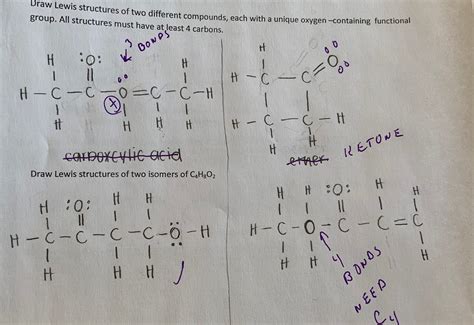 Draw Lewis structures of two different compounds, each with a unique oxygen –containing functional
group. All structures must have at least 4 carbons.
3 BONDS
H :O:
H — C — C — O = C — C — H
+
H H H H
carboxcylic acid
H
H — C — C = O
H — C — C — H
H H
ether KETONE
Draw Lewis structures of two isomers of C₄H₈O₂
H :O: H H
H — C — C — C — C — Ö — H
H H H
H H :O: H H
H — C — O — C — C = C
H H H
4 BONDS
NEED
C4